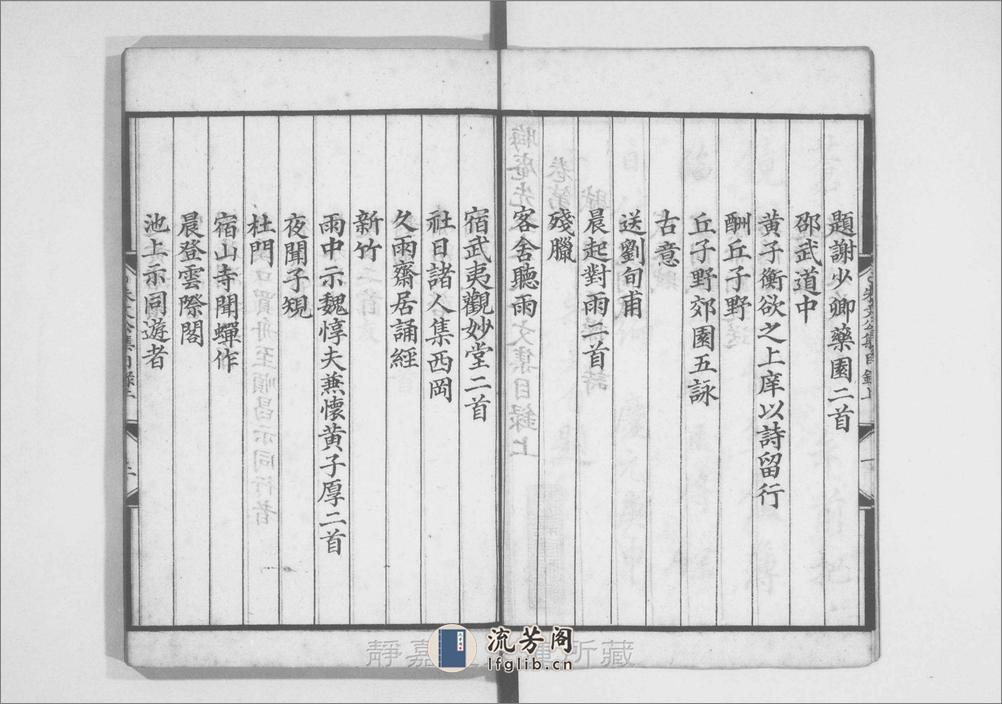 題謝少卿藥園二首
邵武道中
黃子衡欲之上庠以詩留行
酬丘子野
丘子野郊園五詠
古意
送劉旬甫
晨起對雨二首
殘臘
客舍聽雨
宿武夷觀妙堂二首
社日諸人集西岡
久雨齋居誦經
新竹
雨中示魏惇夫兼懷黃子厚二首
夜聞子規
杜門
宿山寺聞蟬作
晨登雲際閣
池上示同遊者
靜嘉 所藏
流芳阁
lfglib.cn